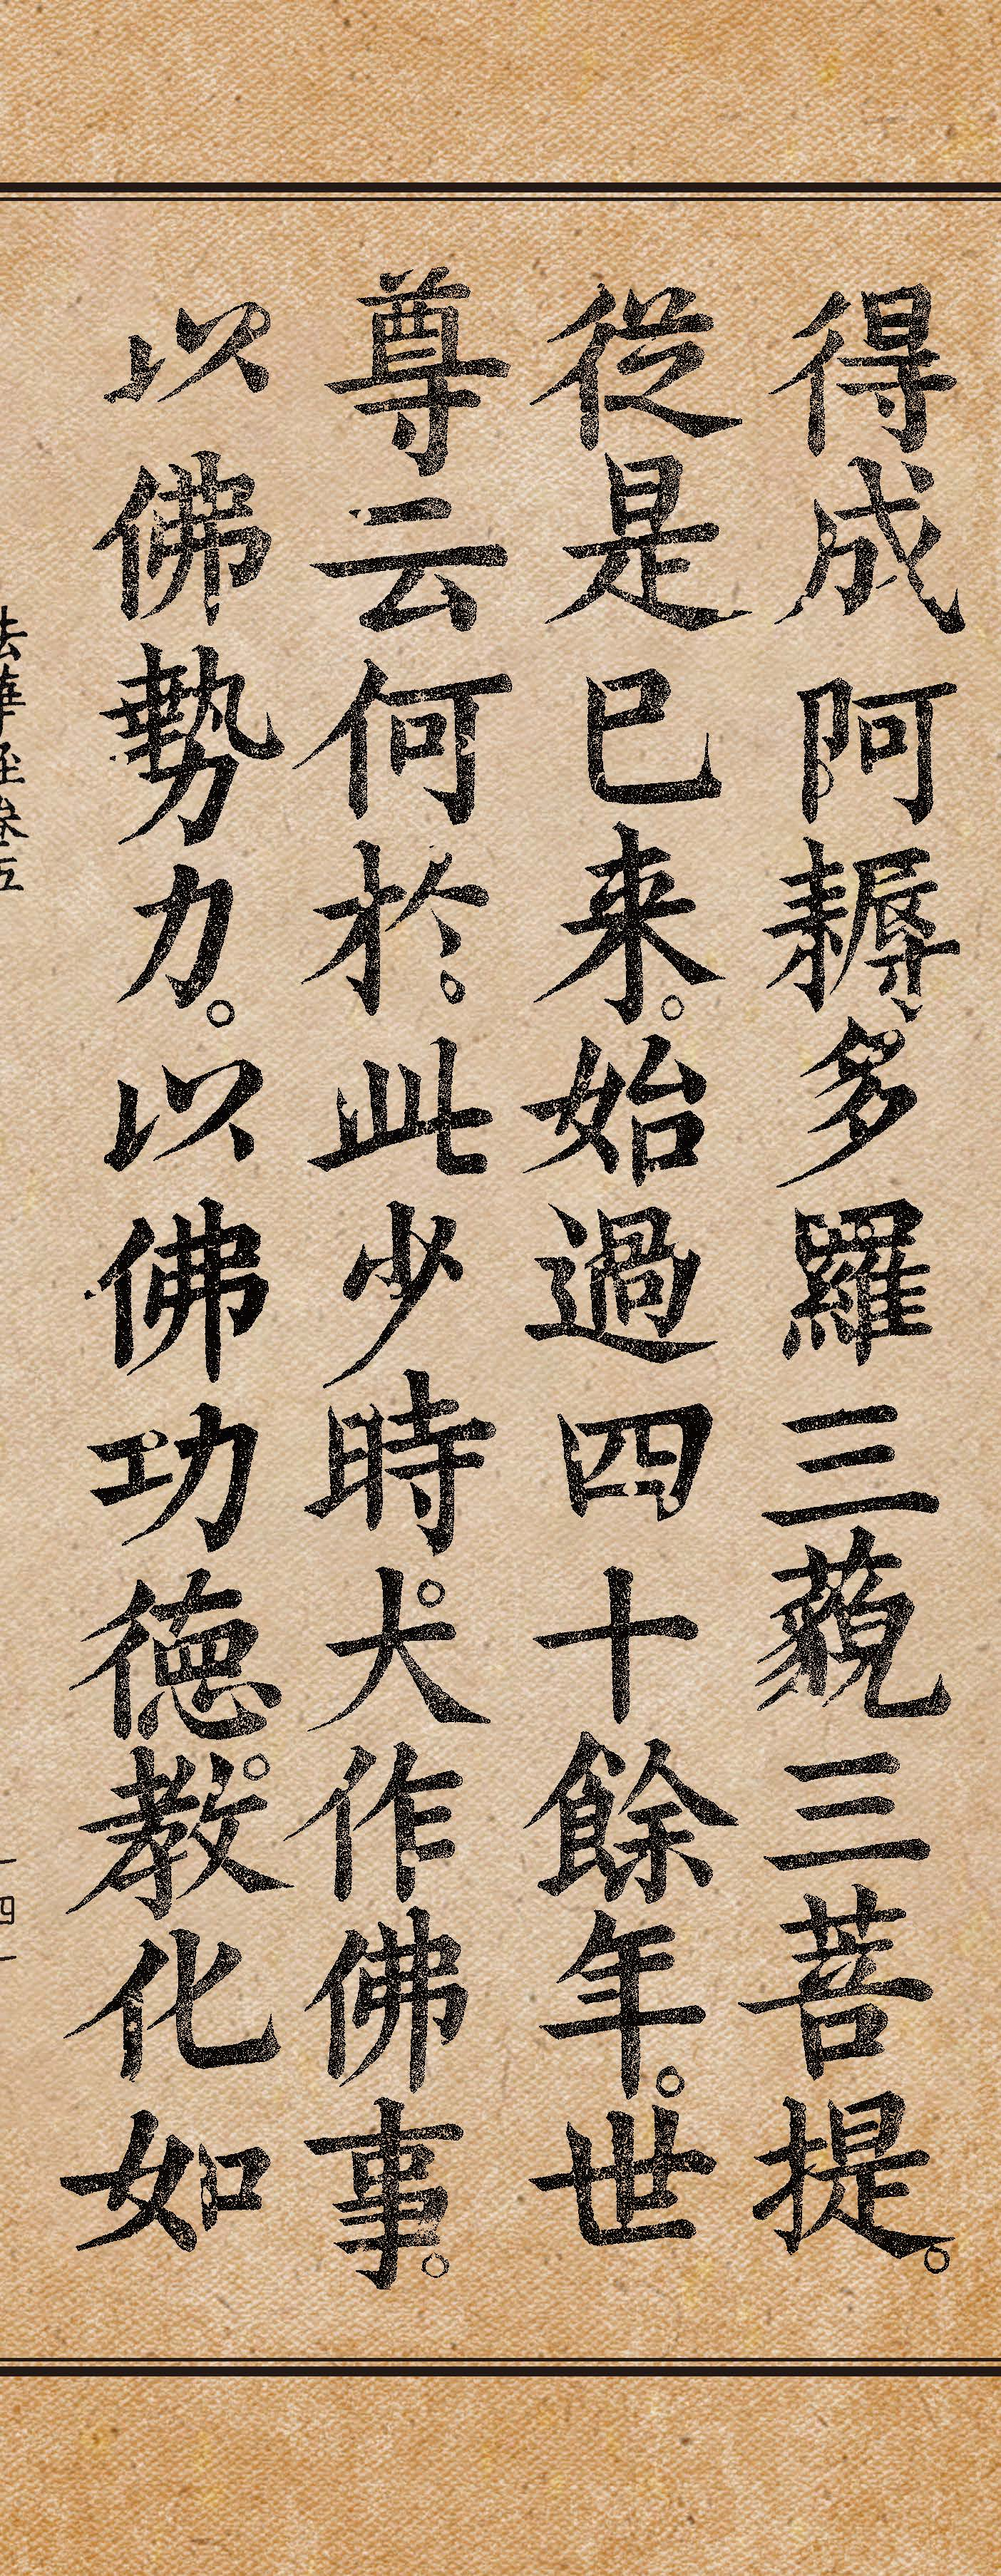 得成阿耨多羅三藐三菩提。
従是已来。始過四十餘年。世
尊云何於。此少時。大作佛事。
以佛勢力。以佛功徳。教化如
法華経巻五
四